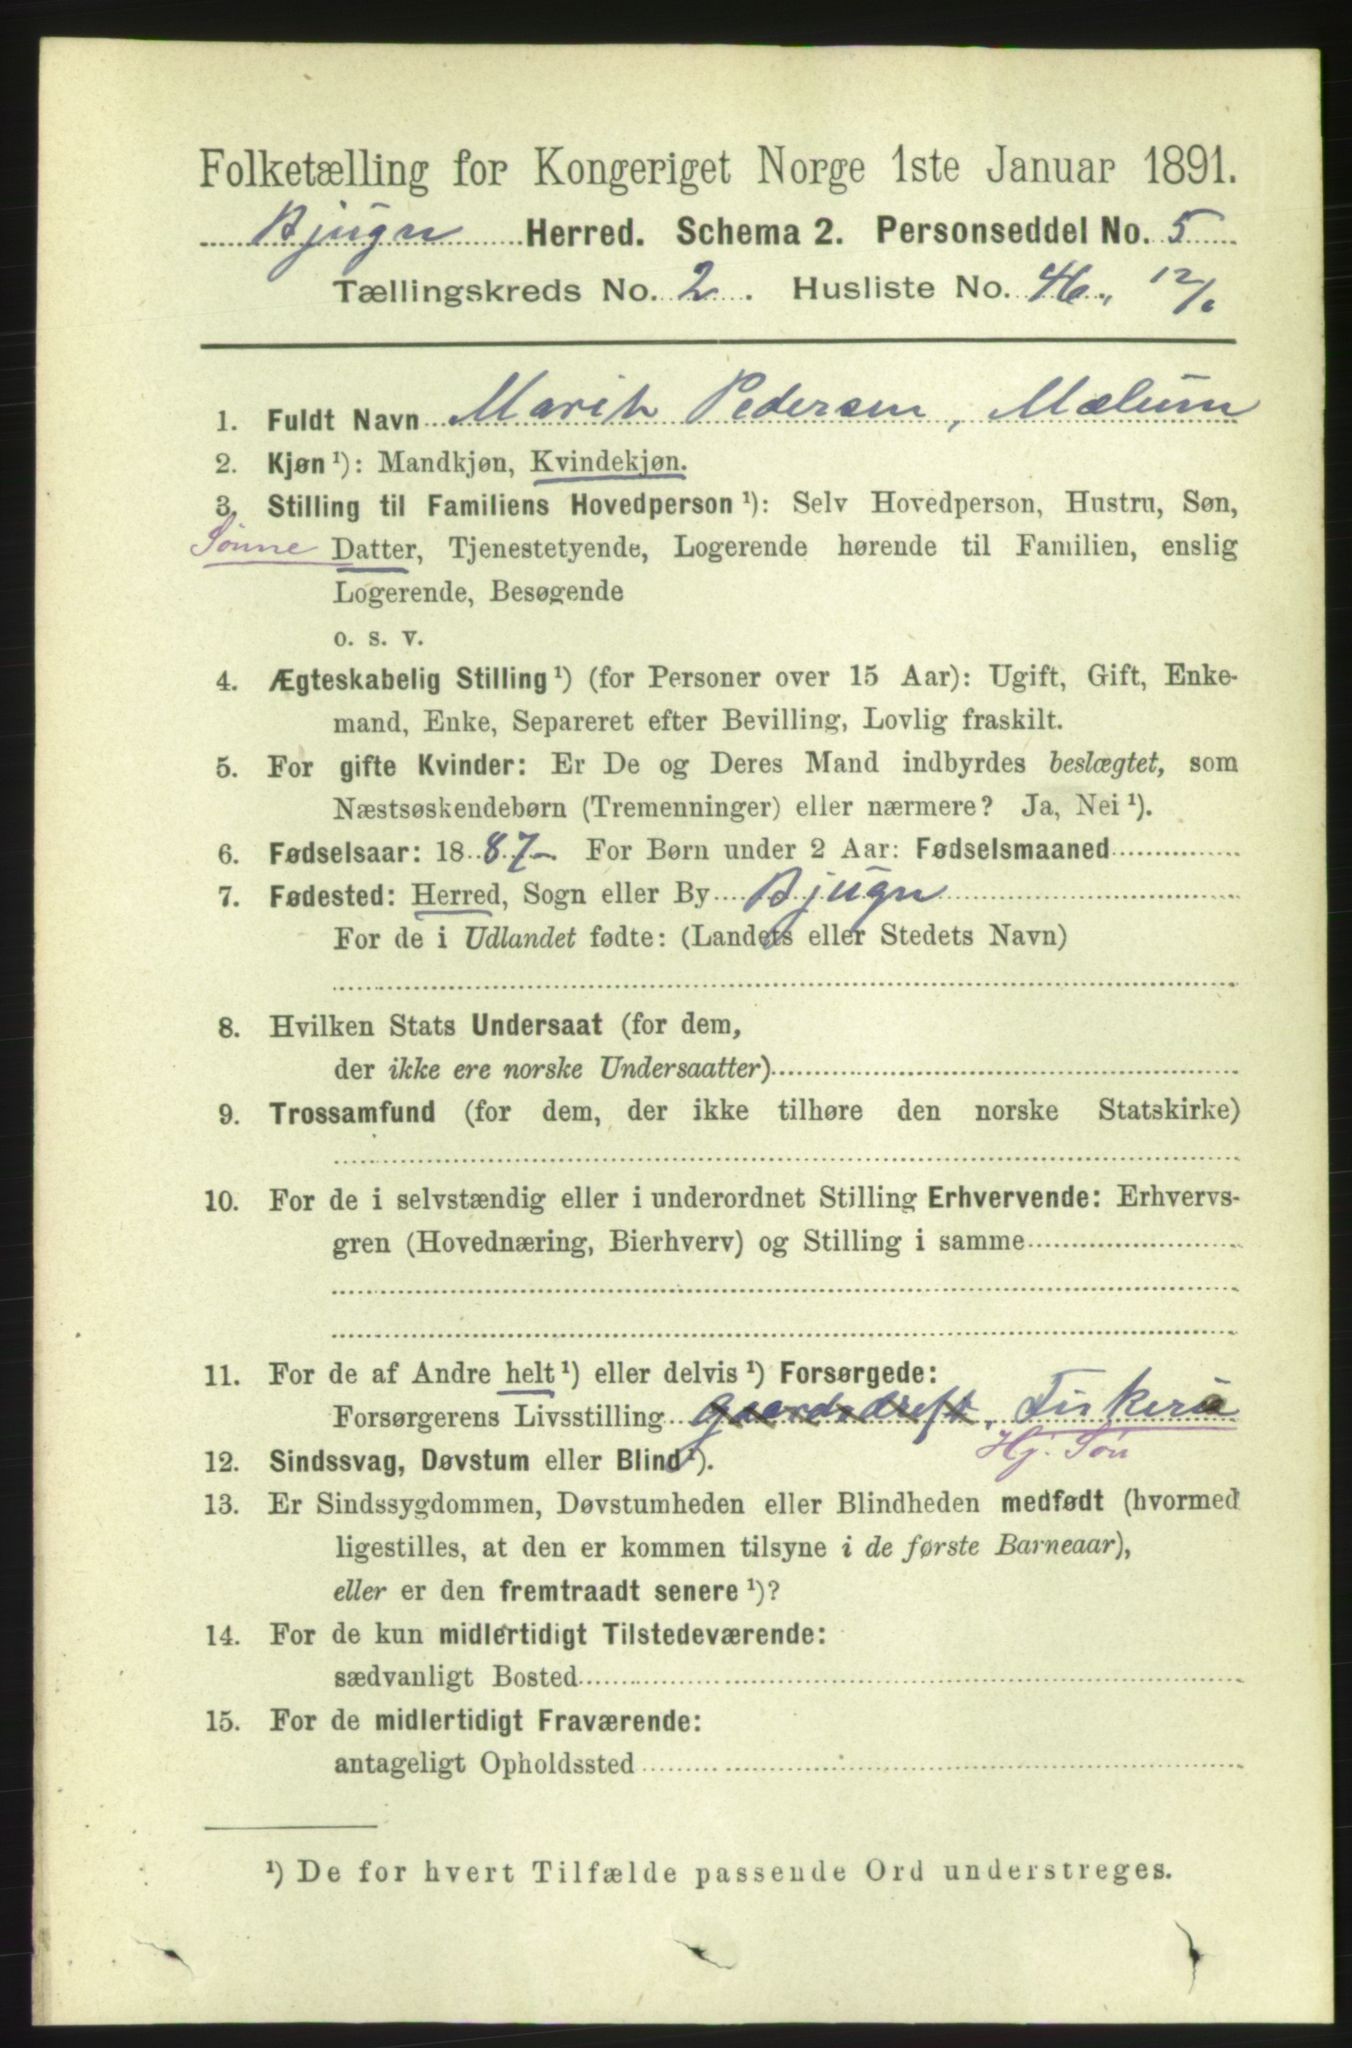 Folketælling for Kongeriget Norge 1ste Januar 1891.
Bjugn Herred. Schema 2. Personseddel No. 5
Tællingskreds No. 2. Husliste No. 46., 12/6
1. Fuldt Navn Marith Pedersen, Mælum
2. Kjøn ¹): Mandkjøn, Kvindekjøn.
3. Stilling til Familiens Hovedperson ¹): Selv Hovedperson, Hustru, Søn,
Sønne Datter, Tjenestetyende, Logerende hørende til Familien, enslig
Logerende, Besøgende
o. s. v.
4. Ægteskabelig Stilling ¹) (for Personer over 15 Aar): Ugift, Gift, Enke-
mand, Enke, Separeret efter Bevilling, Lovlig fraskilt.
5. For gifte Kvinder: Er De og Deres Mand indbyrdes beslægtet, som
Næstsøskendebørn (Tremenninger) eller nærmere? Ja, Nei ¹).
6. Fødselsaar: 1887- For Børn under 2 Aar: Fødselsmaaned
7. Fødested: Herred, Sogn eller By Bjugn
For de i Udlandet fødte: (Landets eller Stedets Navn)
8. Hvilken Stats Undersaat (for dem,
der ikke ere norske Undersaatter)
9. Trossamfund (for dem, der ikke tilhøre den norske Statskirke)
10. For de i selvstændig eller i underordnet Stilling Erhvervende: Erhvervs-
gren (Hovednæring, Bierhverv) og Stilling i samme
11. For de af Andre helt ¹) eller delvis ¹) Forsørgede:
Forsørgerens Livsstilling Gaardsdrift, Fiskeri
Hj. Søn
12. Sindssvag, Døvstum eller Blind ¹).
13. Er Sindssygdommen, Døvstumheden eller Blindheden medfødt (hvormed
ligestilles, at den er kommen tilsyne i de første Barneaar),
eller er den fremtraadt senere ¹)?
14. For de kun midlertidigt Tilstedeværende:
sædvanligt Bosted
15. For de midlertidigt Fraværende:
antageligt Opholdssted
¹) De for hvert Tilfælde passende Ord understreges.